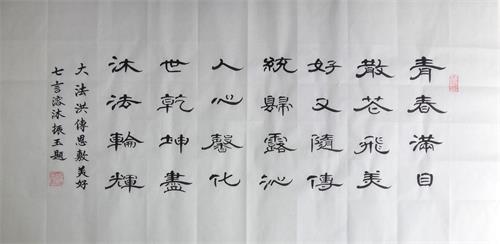 青春滿目
散花飛美
好又隨傳
統歸露沁
人心馨化
世乾坤盡
沐法輪輝
大法洪傳恩敷美好
七言溶沐振玉題